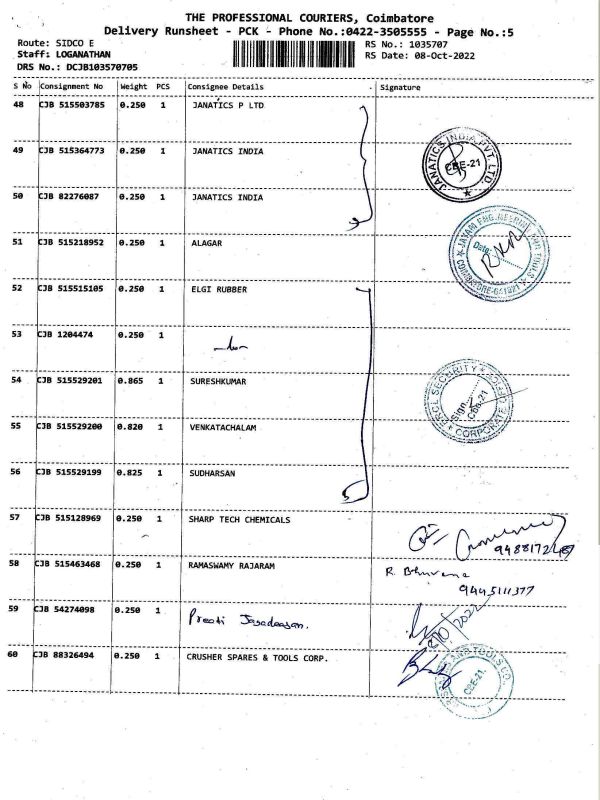 THE PROFESSIONAL COURIERS, Coimbatore
Delivery Runsheet - PCK - Phone No.:0422-3505555 - Page No.:5
Route: SIDCO E RS No.: 1035707
Staff: LOGANATHAN RS Date: 08-Oct-2022
DRS No.: DCJB103570705
S No Consignment No Weight PCS Consignee Details Signature
48 CJB 515503785 0.250 1 JANATICS P LTD
49 CJB 515364773 0.250 1 JANATICS INDIA
JANATICS INDIA PVT. LTD. CBE-21
50 CJB 82276087 0.250 1 JANATICS INDIA
51 CJB 515218952 0.250 1 ALAGAR
Date:
COIMBATORE-641021
52 CJB 515515105 0.250 1 ELGI RUBBER
53 CJB 1204474 0.250 1
54 CJB 515529201 0.865 1 SURESHKUMAR
SECURITY CORPORATE OFFICE Sign CBE-21
55 CJB 515529200 0.820 1 VENKATACHALAM
56 CJB 515529199 0.825 1 SUDHARSAN
57 CJB 515128969 0.250 1 SHARP TECH CHEMICALS
58 CJB 515463468 0.250 1 RAMASWAMY RAJARAM R. Bhuvana
9445111377
59 CJB 54274098 0.250 1 Preeti
60 CJB 88326494 0.250 1 CRUSHER SPARES & TOOLS CORP.
CBE-21.